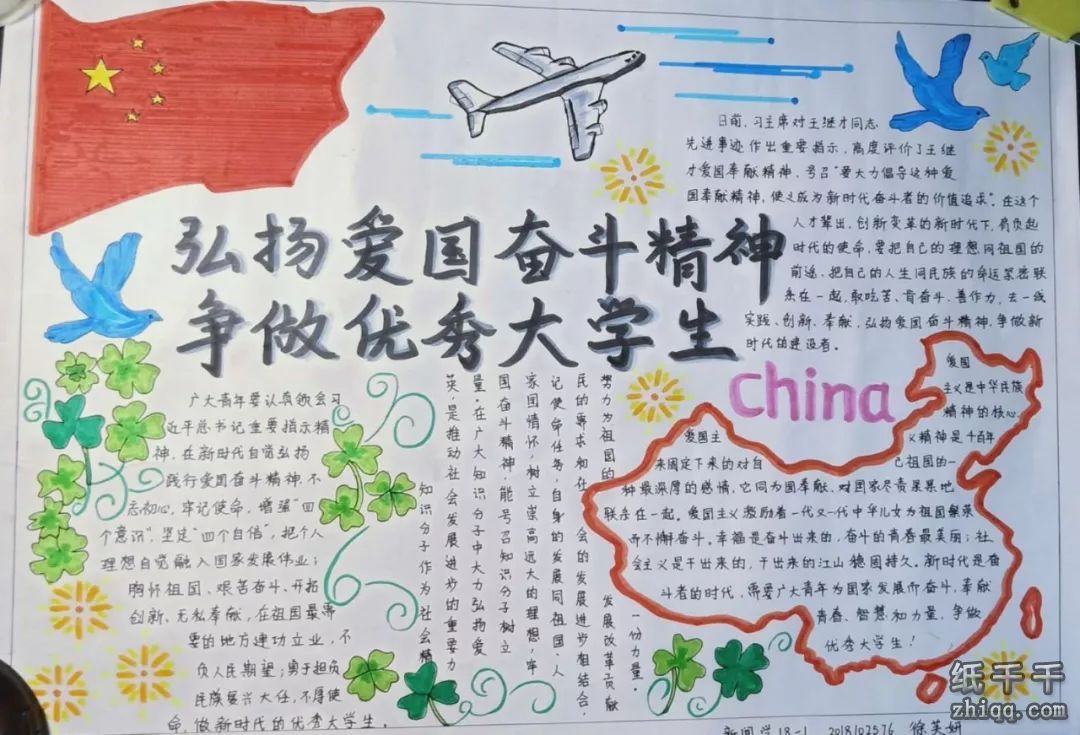 弘扬爱国奋斗精神
争做优秀大学生
日前,习主席对王继才同志
先进事迹作出重要指示,高度评价了王继
才爱国奉献精神,号召“要大力倡导这种爱
国奉献精神,使之成为新时代奋斗者的价值追求”。在这个
人才辈出,创新变革的新时代下,肩负起
时代的使命,要把自己的理想同祖国的
前途、把自己的人生同民族的命运紧密联
系在一起,敢吃苦、肯奋斗、善作力,去一线
实践、创新、奉献,弘扬爱国奋斗精神,争做新
时代的建设者。
广大青年要认真领会习
近平总书记重要指示精
神,在新时代自觉弘扬
践行爱国奋斗精神,不
忘初心,牢记使命,增强“四
个意识”,坚定“四个自信”,把个人
理想自觉融入国家发展伟业;
胸怀祖国、艰苦奋斗、开拓
创新、无私奉献,在祖国最需
要的地方建功立业,不
负人民期望;勇于担负
民族复兴大任,不辱使
命,做新时代的优秀大学生。
知识分子作为社会精
英,是推动社会发展进步的重要力
量。在广大知识分子中大力弘扬爱
国奋斗精神,能号召知识分子树立
家国情怀,树立崇高远大的理想,牢
记使命任务,自身的发展同祖国、人
民的需求和社会的发展进步相结合,
努力为祖国的发展改革贡献
一份力量。
China
爱国
主义是中华民族
精神的核心。
爱国主义精神是千百年
来固定下来的对自己祖国的一
种最深厚的感情,它同为国奉献、对国家尽责紧紧地
联系在一起。爱国主义激励着一代又一代中华儿女为祖国繁荣
而不懈奋斗。幸福是奋斗出来的,奋斗的青春最美丽;社
会主义是干出来的,干出来的江山稳固持久。新时代是奋
斗者的时代,需要广大青年为国家发展而奋斗,奉献
青春、智慧和力量,争做
优秀大学生!
新闻学18-1 2018102576 徐芙妍
纸千千
zhiqq.com